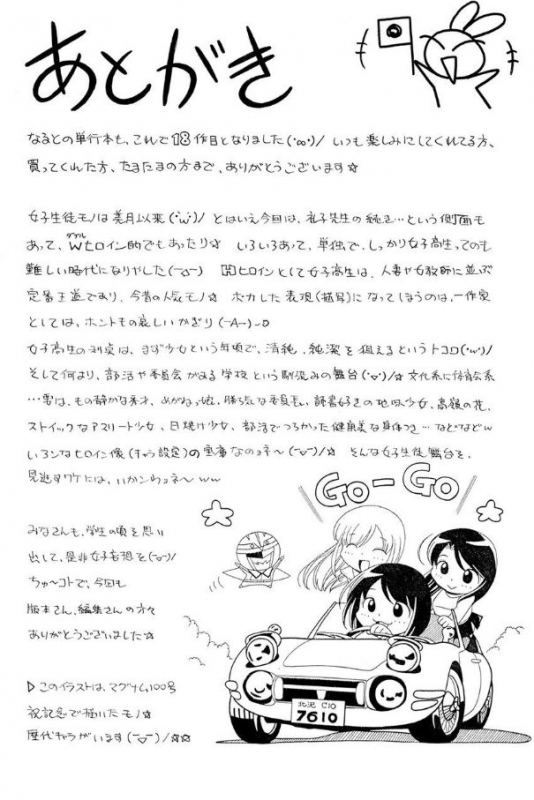 あとがき
なるとの単行本も、これで18作目となりました(・∞・)/ いつも楽しみにしてくれてる方、
買ってくれた方、たまたまの方まで、ありがとうございます☆
女子生徒モノは美月以来(・w・)/ とはいえ今回は、礼子先生の続き…という側面も
あって、Wヒロイン的でもあったり☆ いろいろあって、単独で、しっかり女子高生ってのも
難しい時代になりやした(ーДー) Hヒロインとして女子高生は、人妻や女教師に並ぶ
定番王道であり、今昔の人気モノ☆ ボカした表現(描写)になってしまうのは、一作家
としては、ホントもの哀しいかぎり(ーAー)
女子高生の利点は、まず少女という年頃で、清純、純潔を狙えるというトコロ(・w・)/
そして何より、部活や委員会がある学校という馴染みの舞台(・▽・)/☆文化系に体育会系
…更は、もの静かな秀才、めがねっ娘、勝ち気な委員長、読書好きの地味少女、高嶺の花、
ストイックなアスリート少女、日焼け少女、部活でつちかった健康美な身体つき…などなどw
いろンなヒロイン像(キャラ設定)の宝庫なのョネ〜(ー▽ー)/☆ そんな女子生徒舞台を、
見逃すワケには、いかンわョネ〜ww
GO-GO
みなさんも、学生の頃を思い
出して、是非女子妄想を(ー▽ー)/
ちゅ〜コトで、今回も
版本さん、編集さんの方々
ありがとうございました☆
▷このイラストは、マグナム100号
祝記念で描いたモノ☆
歴代キャラがいます(ー▽ー)/☆☆
北沢 C10
7610